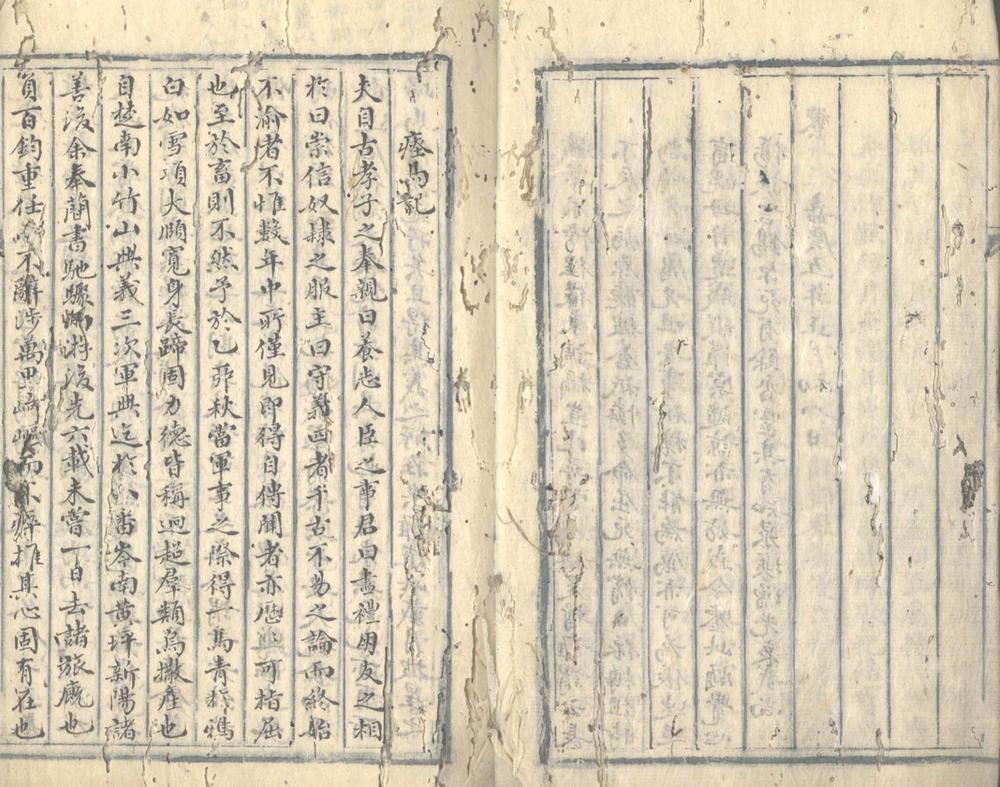 瘞馬記
夫自古孝子之奉親曰養志人臣之事君曰盡禮朋友之相
於曰崇信奴隸之服主曰守義四者千古不易之論而終始
不渝者不惟數年中所僅見即得自傳聞者亦歷歷可指屈
也至於畜則不然予於乙卯秋當軍事之際得一馬青鬃鴉
臼如雪項大頤寬身長蹄固力德皆稱迥超羣類烏撒產也
自楚南小竹山興義三次軍興迄於八番岑南黃坪新陽諸
善後余奉簡書馳驟 後先六載未嘗一日去諸旅廄也
負百鈞重任 不辭涉萬里崎嶇而不 推其心固有在也